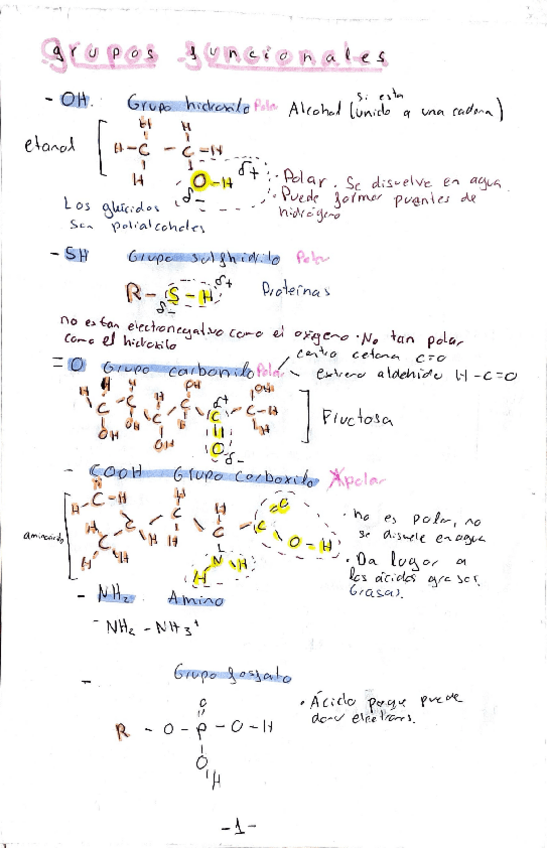 grupos funcionales
- OH. Grupo hidroxilo Polar Alcohol (si esta unido a una cadena)
etanol
H H
H-C - C-H
H O-H δ+
δ-
· Polar. Se disuelve en agua.
· Puede formar puentes de hidrógeno
Los glúcidos
son polialcoholes
- SH Grupo sulfhidrilo Polar
R-S-H δ+ Proteínas
δ-
no es tan electronegativo como el oxígeno · No tan polar
como el hidroxilo
= O Grupo carbonilo Polar
centro cetona C=O
extremo aldehido H-C=O
Fructosa
- COOH Grupo carboxilo Apolar
aminoácido
· no es polar, no
se disuelve en agua
· Da lugar a
los ácidos grasos.
Grasas.
- NH2 Amino
-NH2 - NH3+
- Grupo fosfato
O
R - O - P - O - H
O
H
· Ácido porque puede
donar electrons.
-1-